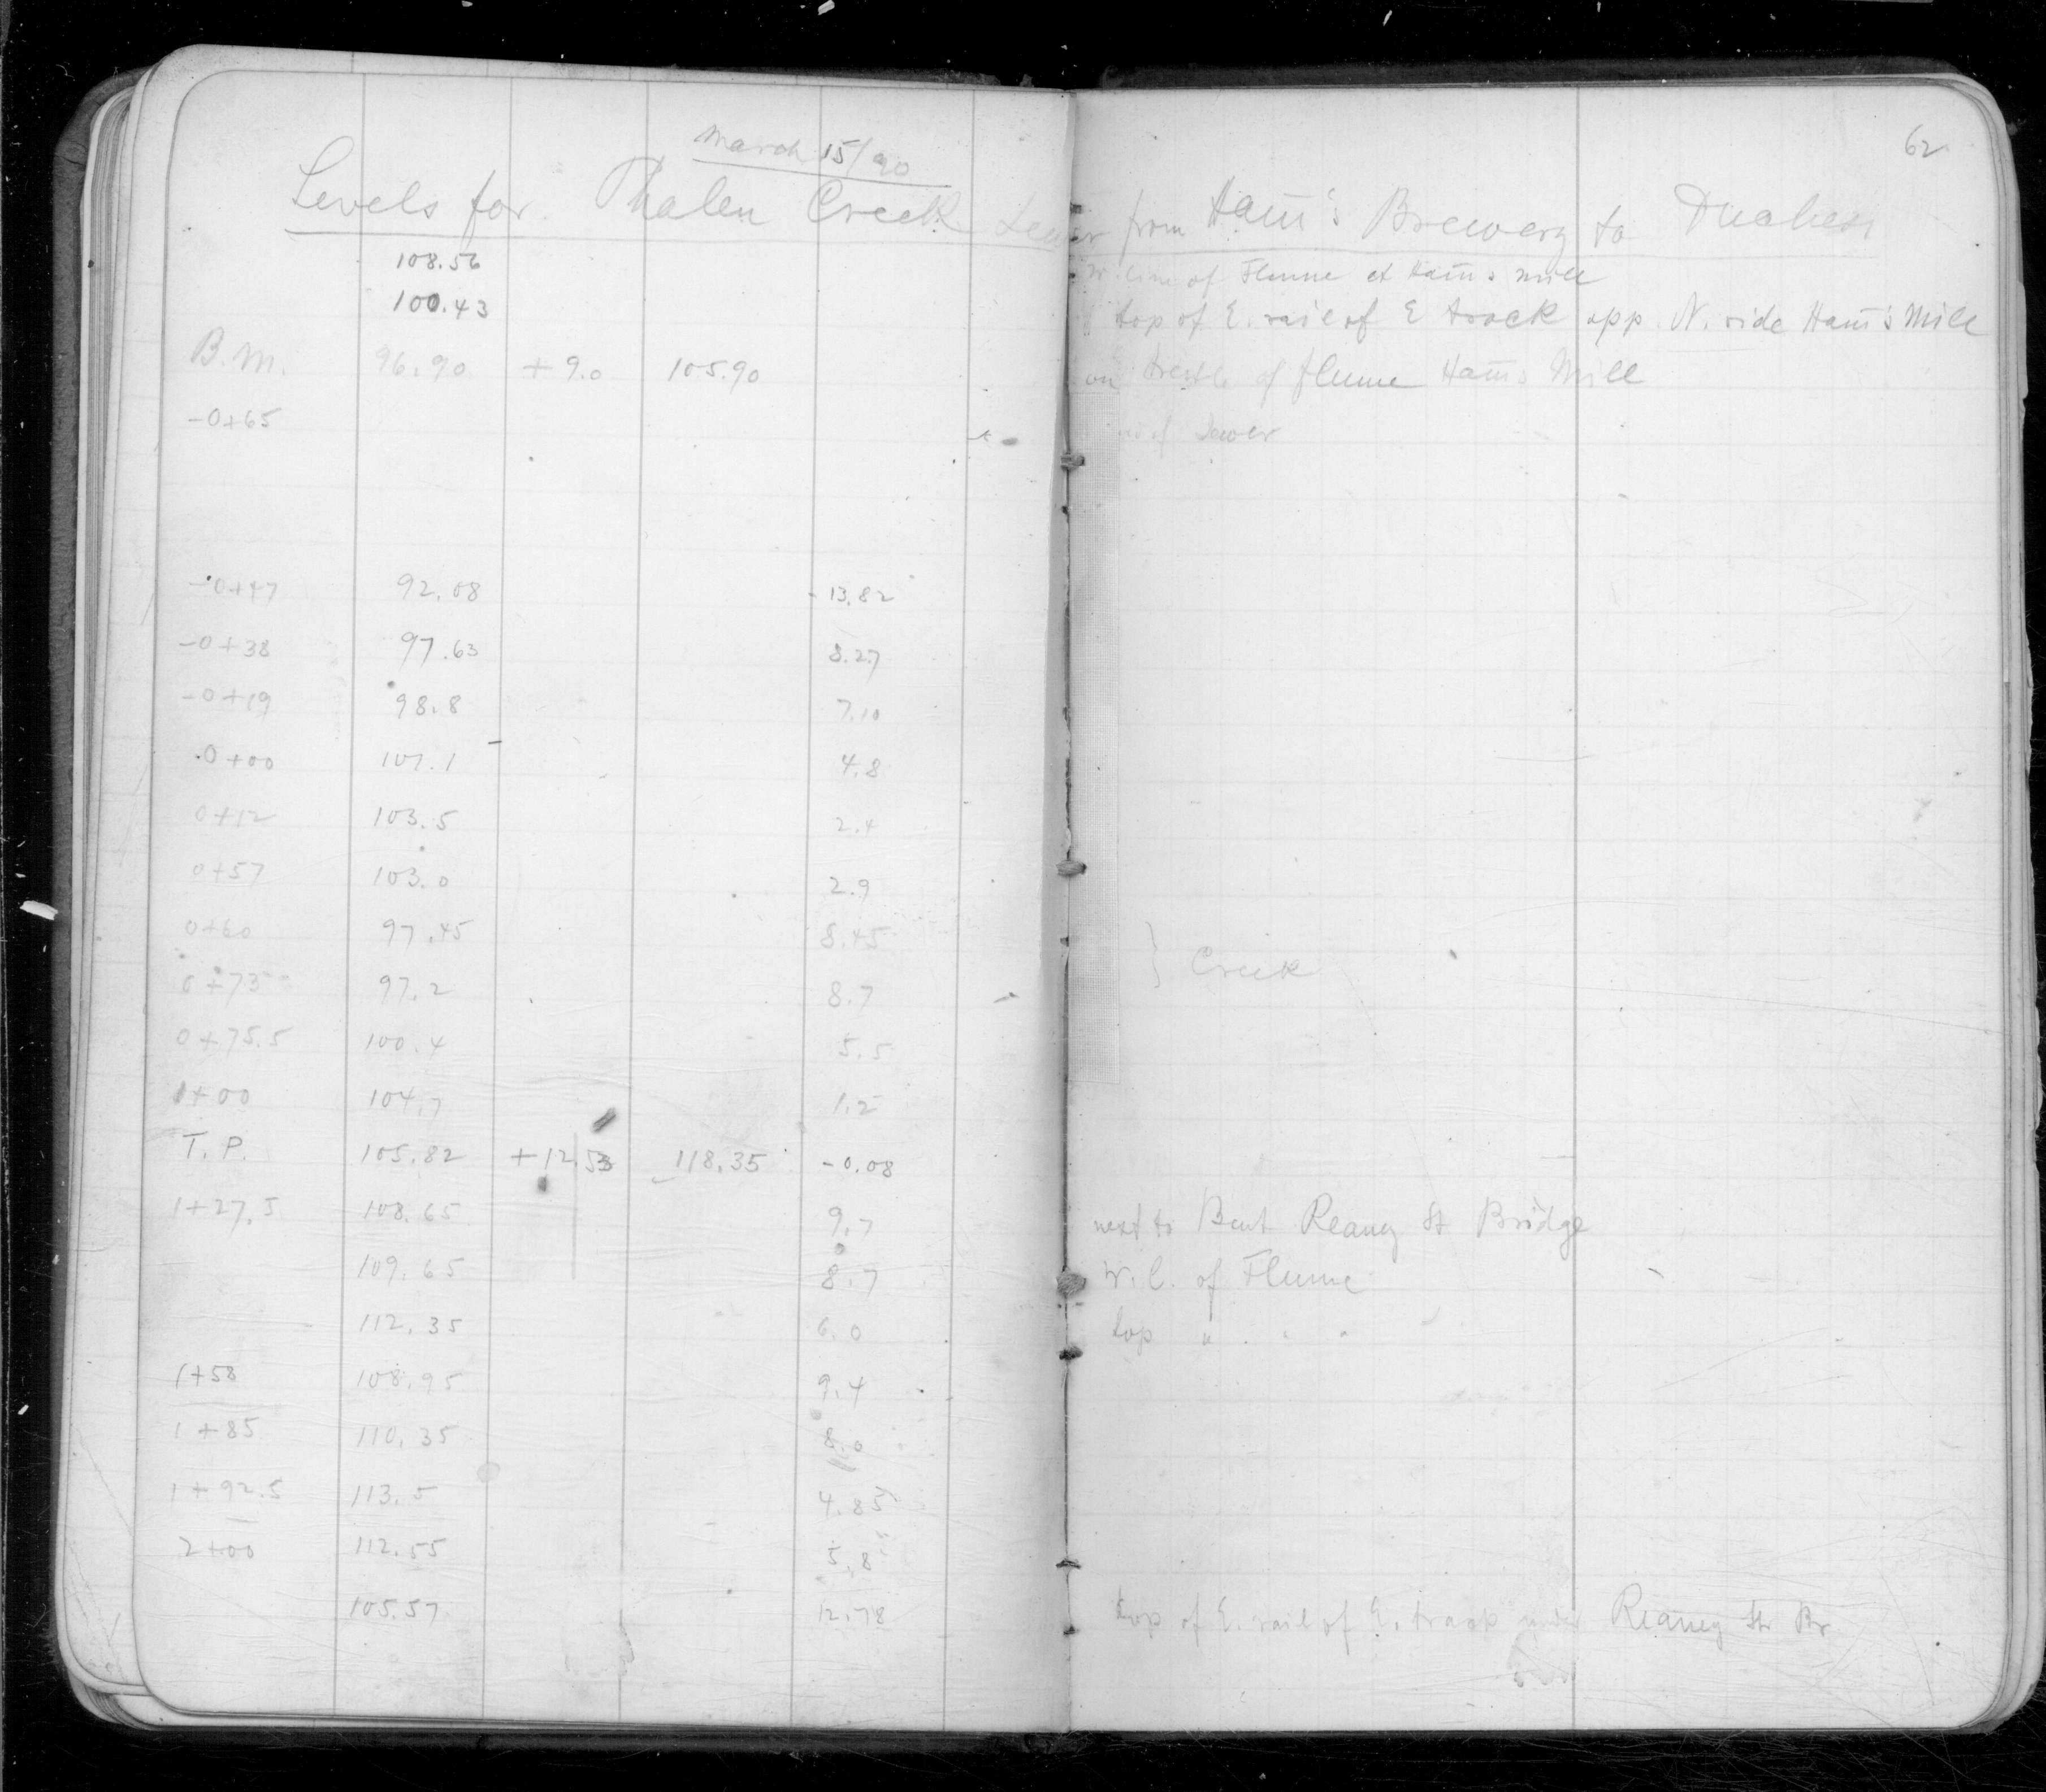 62
March 15/90
Levels for Phalen Creek Sewer from Ham̄'s Brewery to Duchess
108.56 W. line of Flume at Ham̄s Mill
100.43 " top of E. rail of E track opp. N. side Ham̄'s Mill
B.M. 96.90 +9.0 105.90 on trestle of flume Ham̄s Mill
-0+65 end of Sewer
-0+47 92.08 -13.82
-0+38 97.63 8.27
-0+19 98.8 7.10
0+00 101.1 4.8
0+12 103.5 2.4
0+57 103.0 2.9
0+60 97.45 8.45
} Creek
0+73 97.2 8.7
0+75.5 100.4 5.5
1+00 104.7 1.2
T.P. 105.82 +12.53 118.35 -0.08
1+27.5 108.65 9.7 next to Bent Reaney St Bridge
109.65 8.7 W.l. of Flume
112.35 6.0 top " " "
1+58 108.95 9.4
1+85 110.35 8.0
1+92.5 113.5 4.85
2+00 112.55 5.8
105.57 12.78 top of E. rail of E. track under Reaney St Br